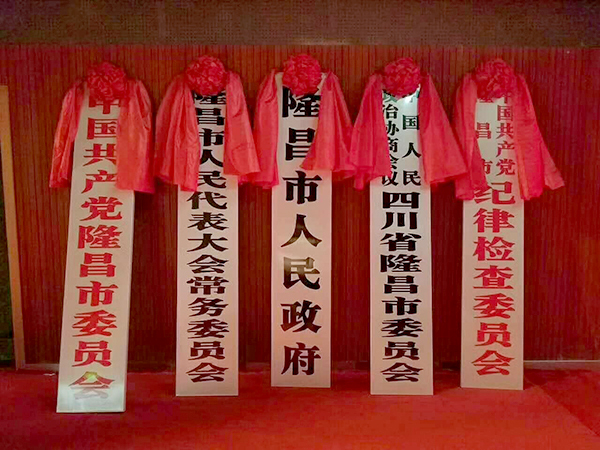 中国共产党隆昌市委员会
隆昌市人民代表大会常务委员会
隆昌市人民政府
国人民
政治协商会议
四川省隆昌市委员会
中国共产党
昌市
纪律检查委员会